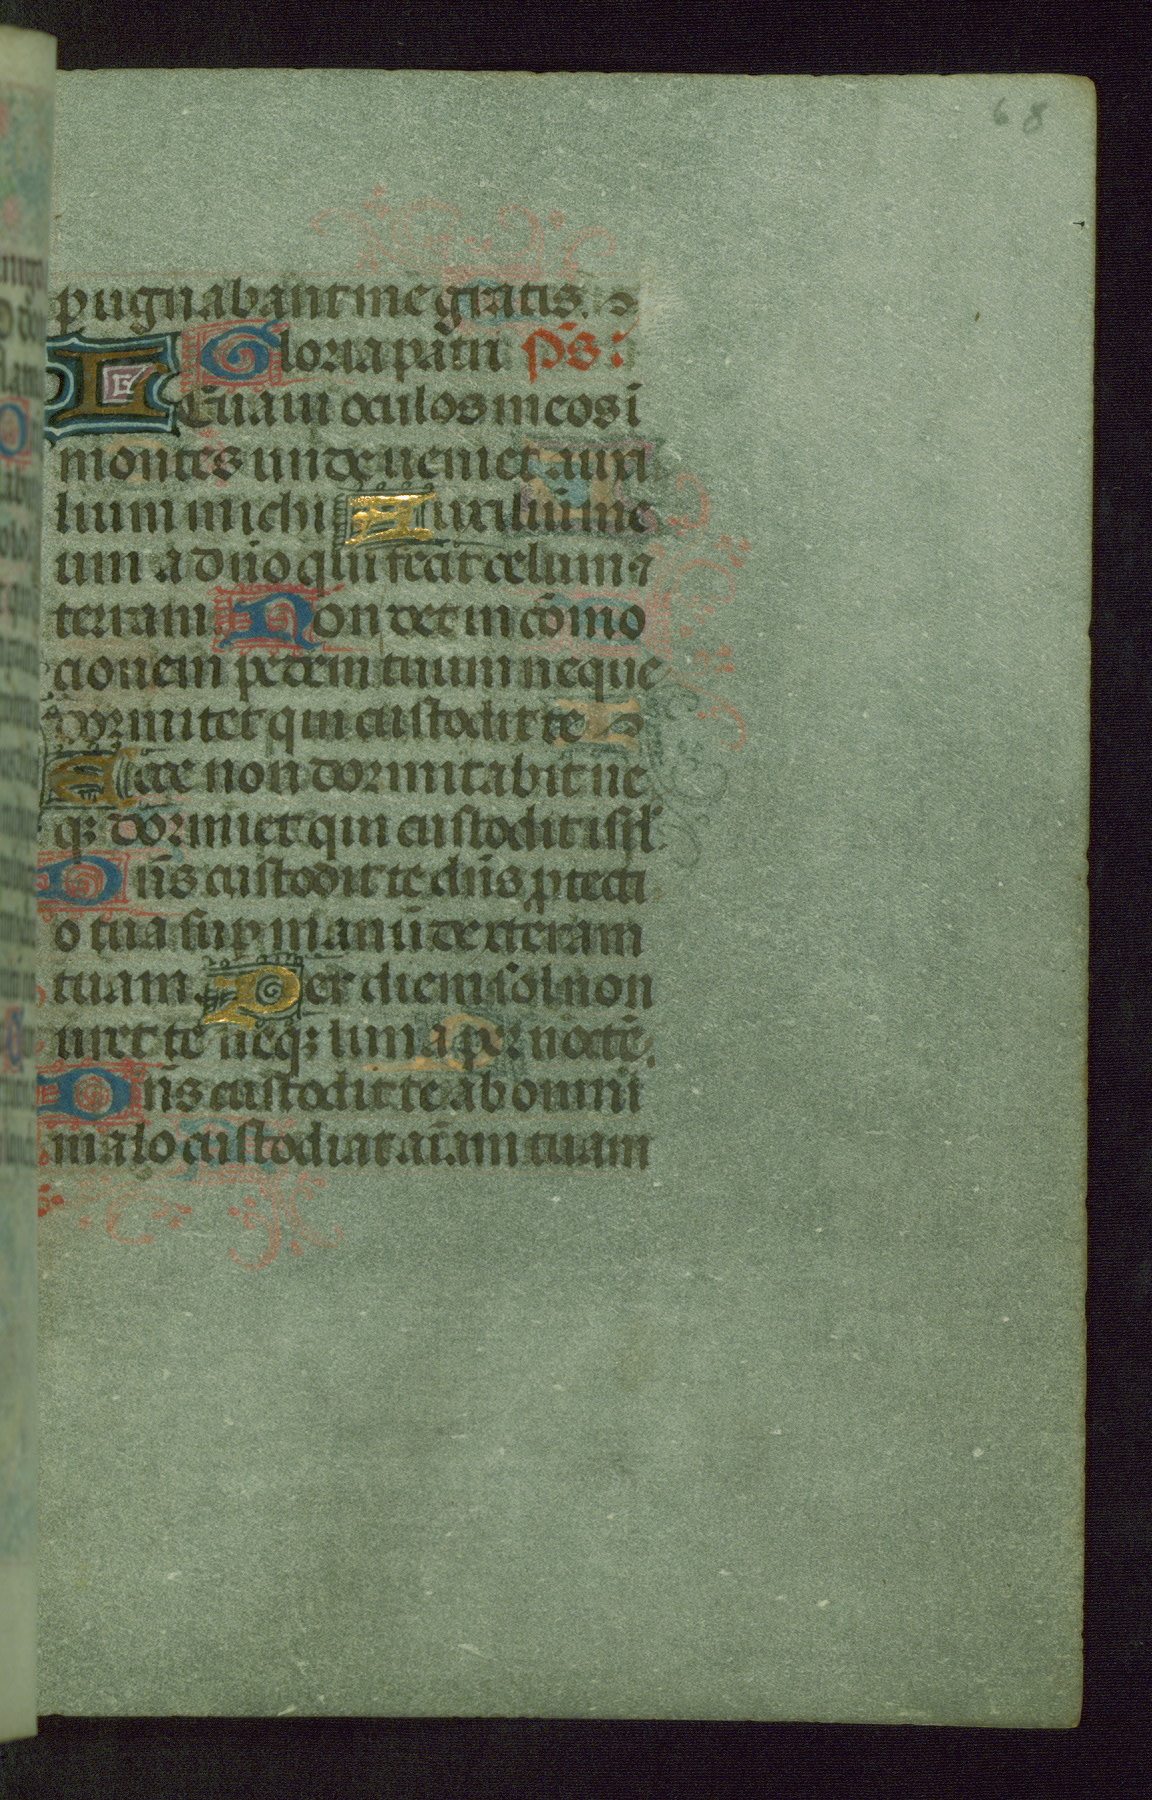 68
pugnabant me gratis.
Gloria patri p̄s:
Leuaui oculos meos ī
montes unde ueniet auxi
lium michi Auxiliū me
um a dn̄o qui fecit celum ⁊
terram. Non det in cōmo
cionem pedem tuum neque
dormitet qui custodit te
Ecce non dormitabit ne
qꝫ dormiet qui custodit isrl̄.
Dn̄s custodit te dn̄s ꝓtecti
o tua suꝑ manū dexteram
tuam. Per diem sol non
uret te neqꝫ luna per noctē.
Dn̄s custodit te ab omni
malo custodiat aīam tuam